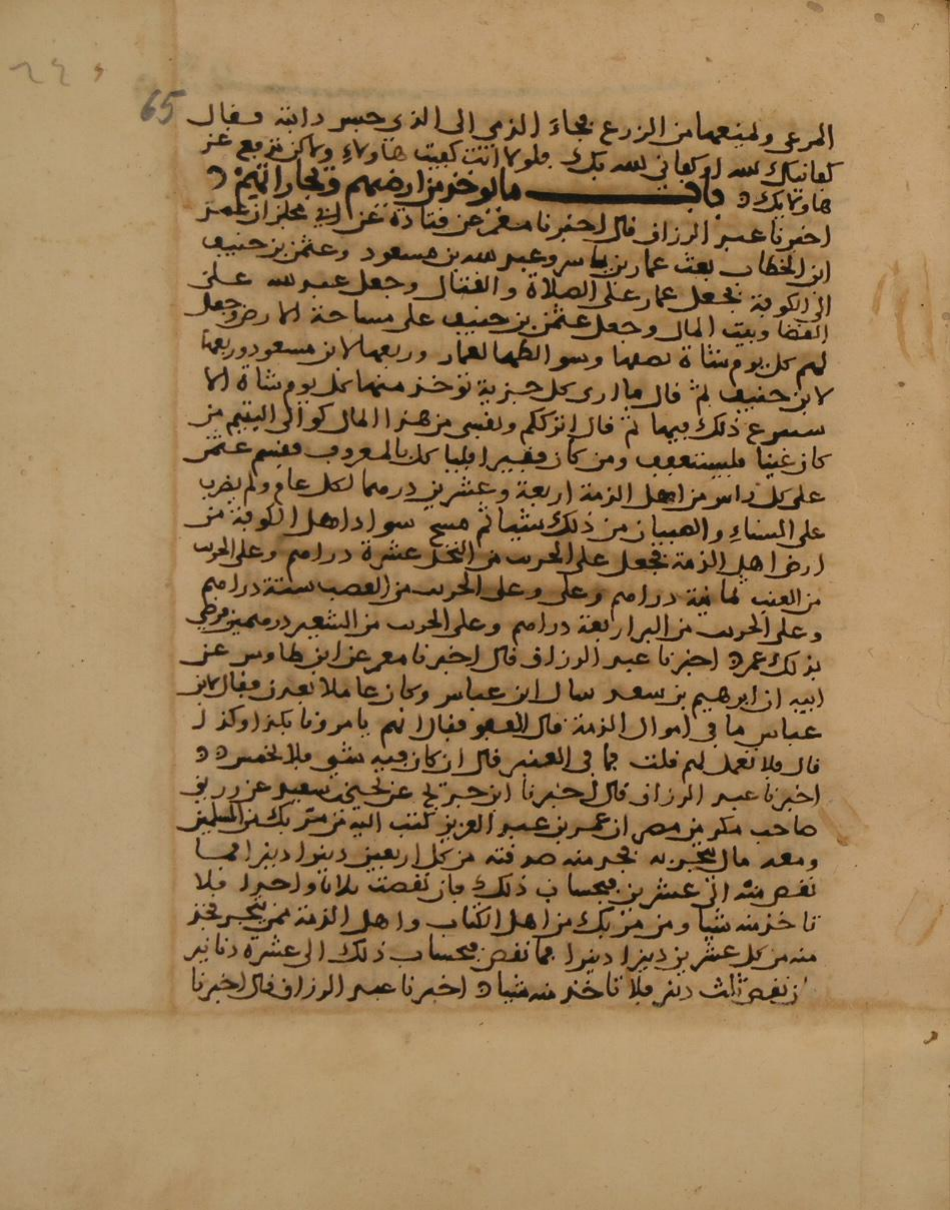 65
المرعى ولمنعهما من الزرع فجاء الذمي الى الذي حبس دابته فقال
كفانيك الله او كفاني الله بك فلولا انت كفيت هاولاء ولاكن تدفع عن
هاولا بك باب ما يوخذ من ارضيهم وتجاراتهم
اخبرنا عبد الرزاق قال اخبرنا معمر عن قتادة عن ابي مجلز ان عمر
ابن الخطاب بعث عمار بن ياسر وعبد الله بن مسعود وعثمن بن حنيف
الى الكوفة فجعل عمار على الصلاة والقتال وجعل عبد الله على
القضا وبيت المال وجعل عثمن بن حنيف على مساحة الارض وجعل
لهم كل يوم شاة نصفها وسواقطها لعمار وربعها لابن مسعود وربعها
لابن حنيف ثم قال ما ارى كل جزية توخذ منها كل يوم شاة الا
سيسرع ذلك فيها ثم قال انزلكم ونفسي من هذا المال كوالى اليتيم من
كان غنيا فليستعفف ومن كان فقيرا فليا كل بالمعروف فقسم عثمن
على كل راس من اهل الذمة اربعة وعشرين درهما لكل عام ولم يضرب
على النساء والصبيان من ذلك شيا ثم مسح سواد اهل الكوفة من
ارض اهل الذمة فجعل على الجريب من النخل عشرة دراهم وعلى الجريب
من العنب ثمانية دراهم وعلى وعلى الجريب من القصب ستة دراهم
وعلى الجريب من البر اربعة دراهم وعلى الجريب من الشعير درهمين فرضي
بذلك عمر اخبرنا عبد الرزاق قال اخبرنا معمر عن ابن طاوس عن
ابيه ان ابرهيم بن سعد سال ابن عباس وكان عاملا بعدن فقال لابن
عباس ما في اموال الذمة قال العفو فقال انهم يامرونا بكذا وكذا
قال فلا تعمل لهم قلت فما في العنبر قال ان كان فيه شي فالخمس
اخبرنا عبد الرزاق قال اخبرنا ابن جريج عن يحيى بن سعيد عن رزيق
صاحب مكوس مصر ان عمر بن عبد العزيز كتب اليه من مر بك من المسلمين
ومعه مال يتجر به فخذ منه صدقته من كل اربعين دينرا دينرا فما
نقص منه الى عشرين فبحساب ذلك فان نقصت ثلثا واحدا فلا
تاخذ منه شيا ومن مر بك من اهل الكتاب واهل الذمة ممن يتجر فخذ
منه من كل عشرين دينرا دينرا فما نقص فبحساب ذلك الى عشرة دنانير
ان نقص ثلث دينر فلا تاخذ منه شيا اخبرنا عبد الرزاق قال اخبرنا